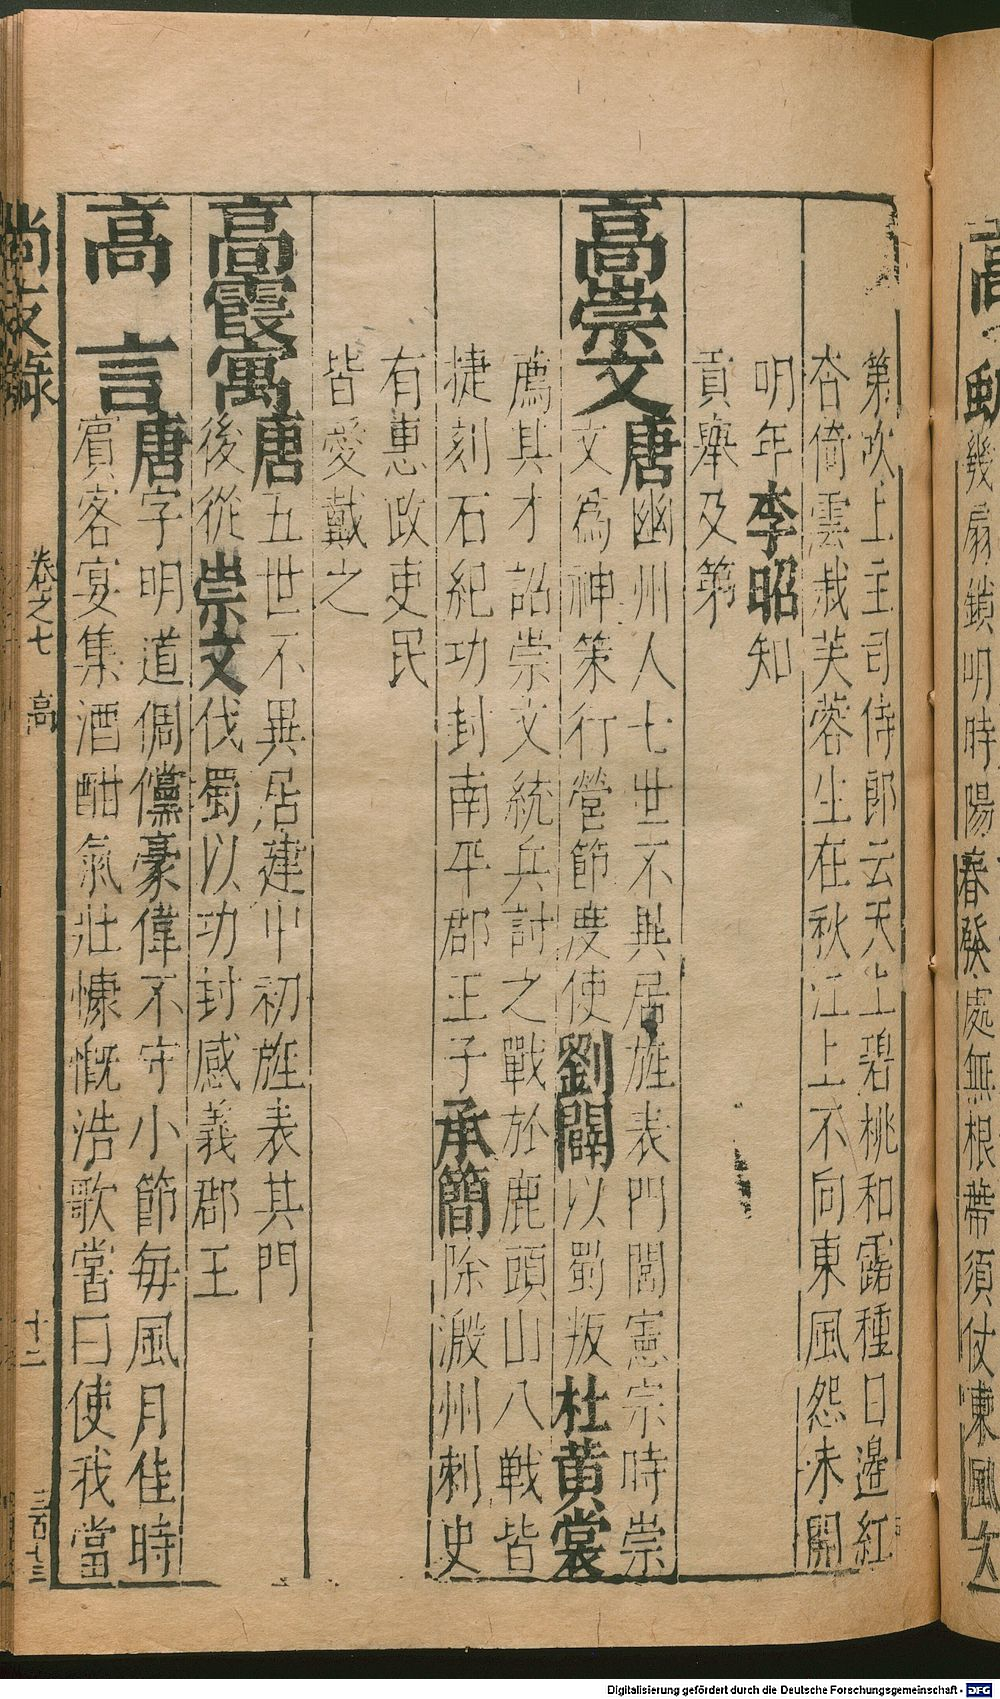 第欬上主司侍郎云天上碧桃和露種日邉紅
杏倚雲栽芙蓉生在秋江上不向東風怨未開
明年李昭知
貢舉及第
高崇文唐幽州人七世不異居旌表門閭憲宗時崇
文為神策行營節度使劉闢以蜀叛杜黃裳
薦其才詔崇文統兵討之戰於鹿頭山八戰皆
捷刻石紀功封南平郡王子承簡除濲州刺史
有惠政吏民
皆愛戴之
高霞寓唐五世不異居建中初旌表其門
後從崇文伐蜀以功封感義郡王
高言唐字明道倜儻豪偉不守小節每風月佳時
賓客宴集酒酣氣壯慷慨浩歌嘗曰使我當
尚友錄 卷之七 高 十二 三百十三
幾扇鎖明時陽春發處無根蒂須仗東風
Digitalisierung gefördert durch die Deutsche Forschungsgemeinschaft - DFG